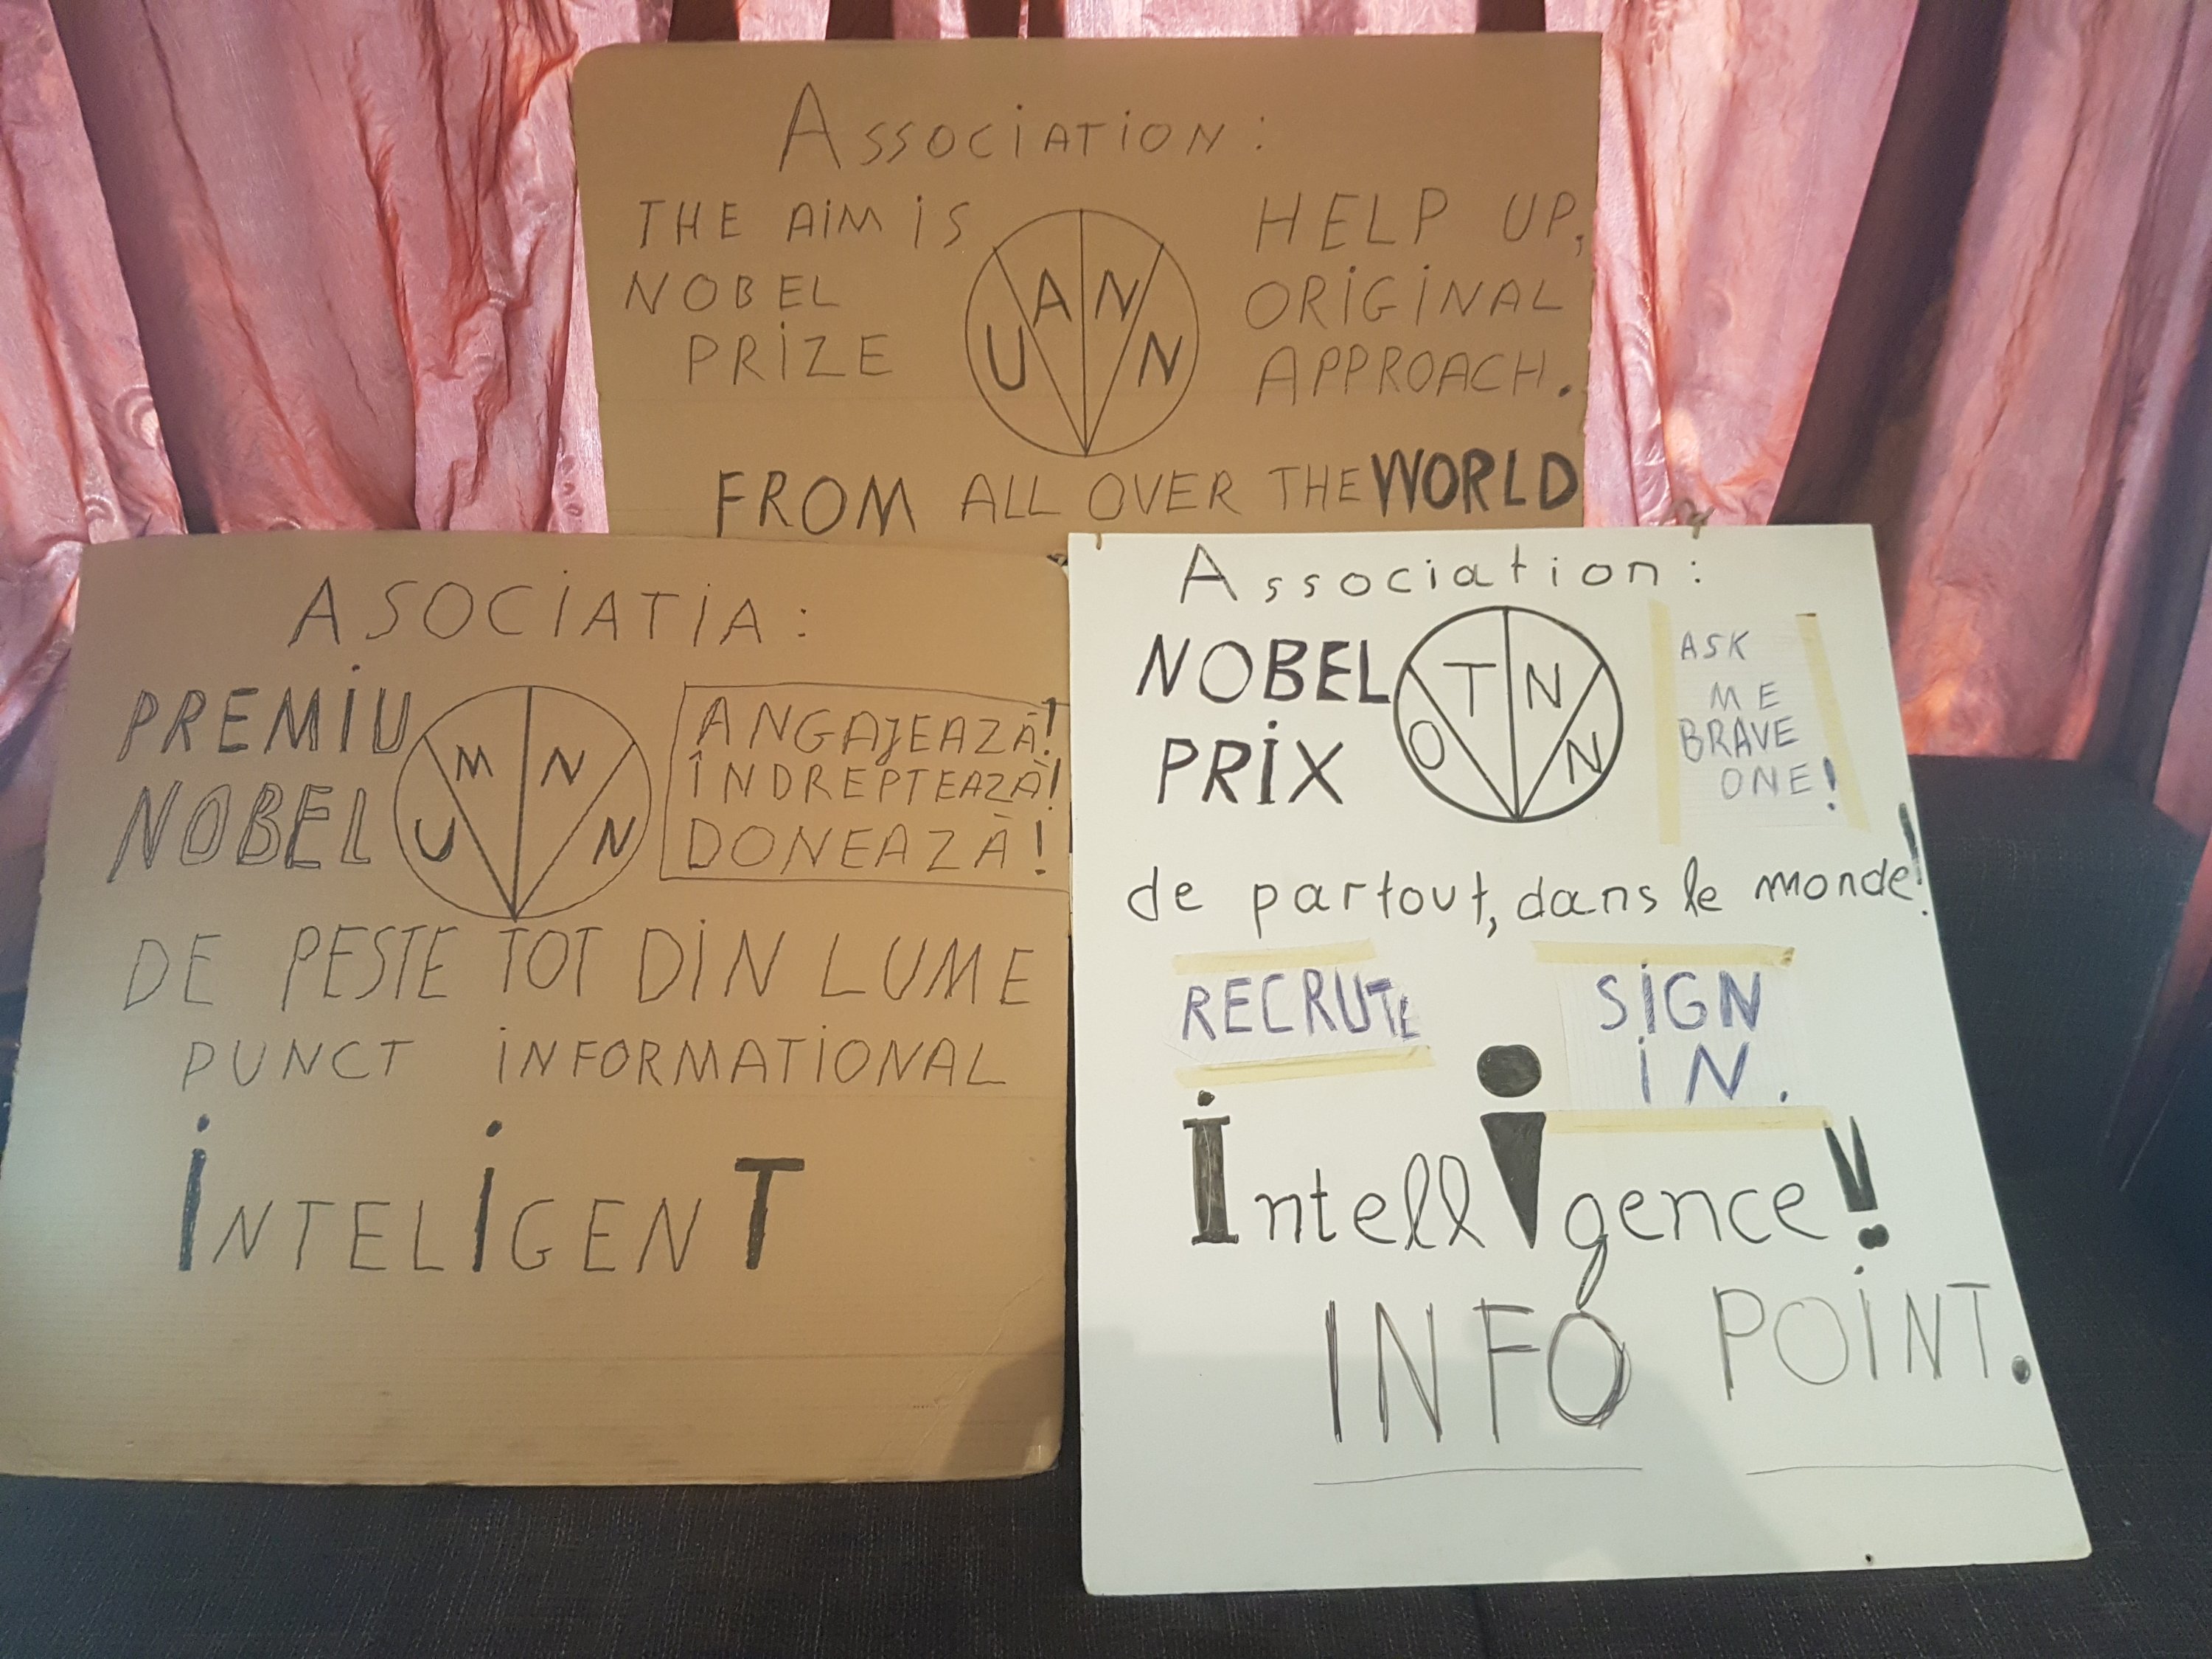 ASSOCiATiON:
THE AiM iS
NOBEL
PRiZE
U A N N
HELP UP,
ORiGiNAL
APPROACH.
FROM ALL OVER THE WORLD
ASOCiATiA:
PREMiU
NOBEL
U M N N
ANGAJEAZĂ!
ÎNDREPTEAZĂ!
DONEAZĂ!
DE PESTE TOT DiN LUME
PUNCT iNFORMATiONAL
iNTELiGENT
Association:
NOBEL
PRiX
O T N N
ASK
ME
BRAVE
ONE!
de partout, dans le monde!
RECRUTE
SiGN
iN.
intelligence!
INFO POiNT.